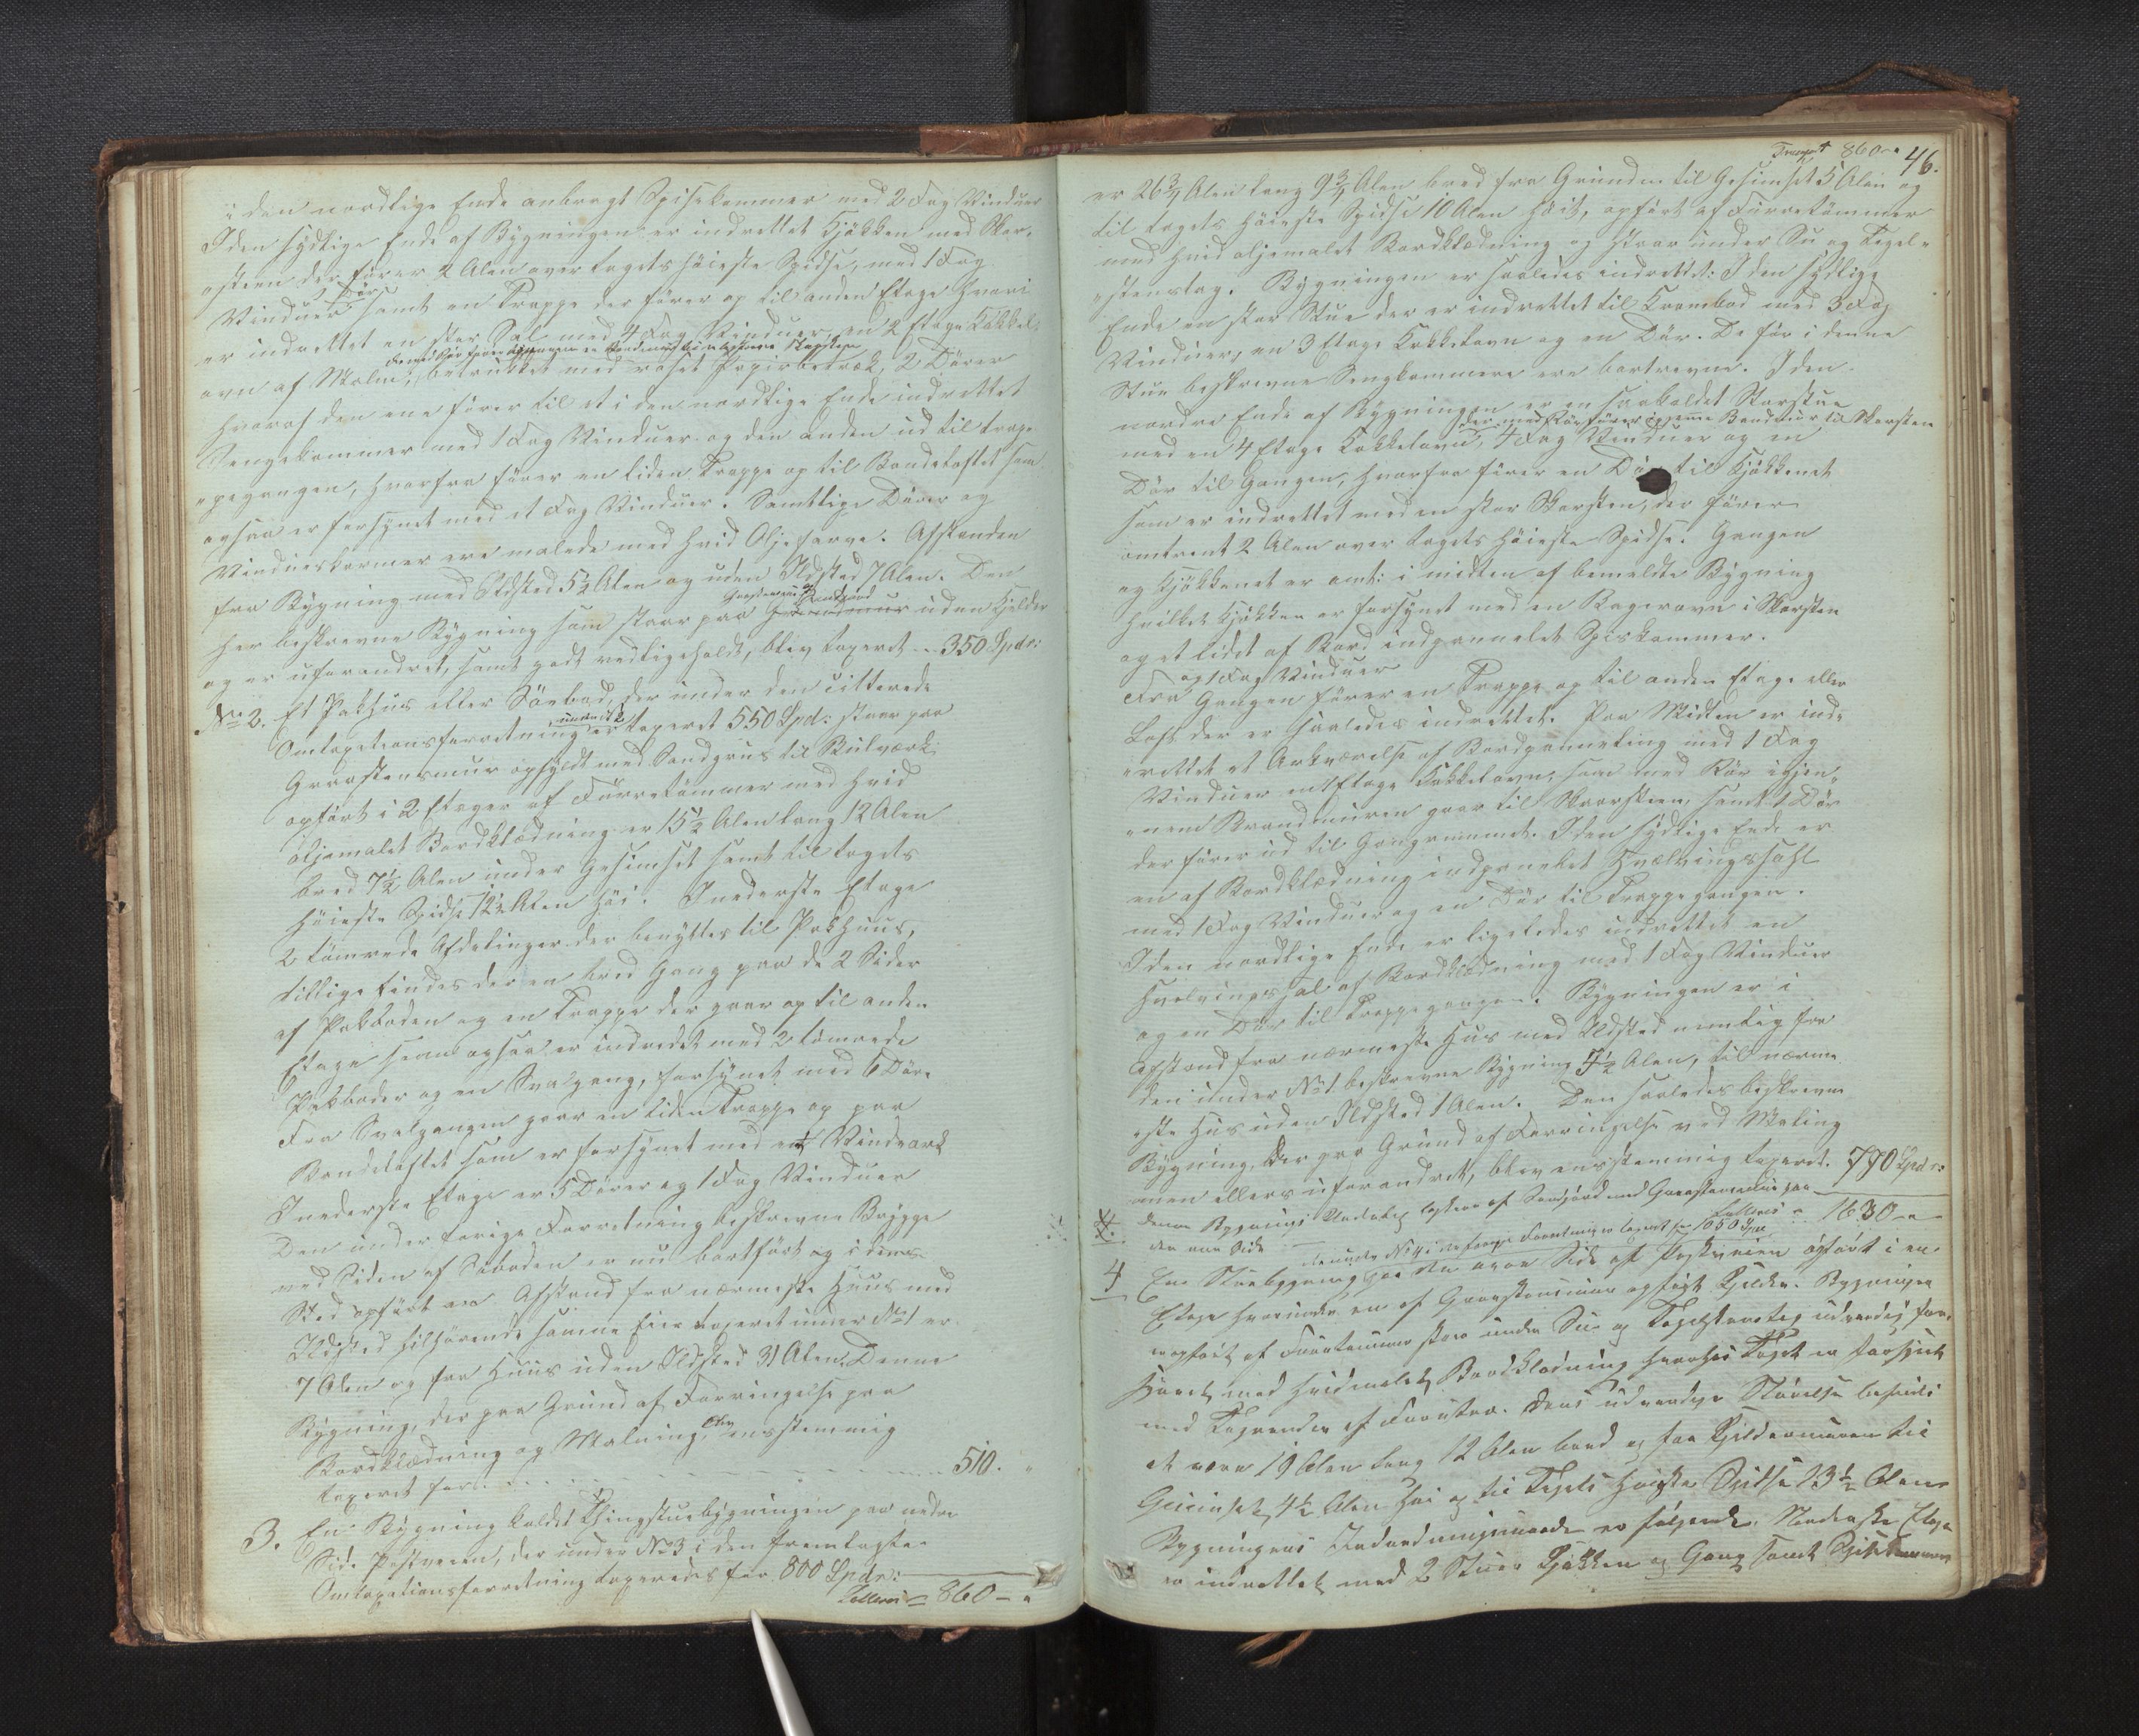 i den nordlige Ende anbragt Spisekammer med 2 Fag Vinduer
I den sydlige Ende af Bygningen er indrettet Kjøkken med Skor-
steen der fører 2 Alen over Tagets høieste Spidse, med 1 Fag
Vinduer 1 Dør samt en Trappe der fører op til anden Etage hvori
er indrettet en stor Sal med 4 Fag Vinduer, en 2 Etage Kakkel-
ovn af Malm, betrukket med roset Papirbetræk, 2 Dører
hvoraf den ene fører til et i den nordlige Ende indrettet
Sengekammer med 1 Fag Vinduer og den anden ud til Trap-
pegangen, hvorfra fører en liden Trappe op til Bondeloftet som
ogsaa er forsynet med et Fag Vinduer. Samtlige Dører og
Vindueskarmer ere malede med hvid Oljefarve. Afstanden
fra Bygning med Ildsted 5½ Alen og uden Ildsted 7 Alen. Den
her beskrevne Bygning som staar paa Grundmuur uden Kjelder
og er uforandret, samt godt vedligeholdt, blev taxeret - 350 Spdr:
No 2. Et Pakhus eller Søebod, der under den citterede
Omtaxationsforretning under No 2 er taxeret 550 Spd: staar paa
Graastensmuur opfyldt med Sandgruus til Bulværk,
opført i 2 Etager af Furretømmer med hvid
oljemalet Bordklædning er 15½ Alen lang 12 Alen
bred 7½ Alen under Gesimset samt til Tagets
høieste Spidse 12½ Alen høi. I nederste Etage
2 tømrede Afdelinger der benyttes til Pakhuus,
tillige findes der en bred Gang paa de 2 Sider
af Pakboden og en Trappe der gaar op til anden
Etage som ogsaa er indredet med 2 tømrede
Pakboder og en Svalgang, forsynet med 6 Døre
Fra Svalgangen gaar en liden Trappe op paa
Bondeloftet som er forsynet med et Vindverk
I nederste Etage er 5 Dører og 1 Fag Vinduer
Den under forige Forretning beskrevne Brygge
ved Siden af Søboden er nu bortført og i dennes
Sted opført en Afstand fra nærmeste Huus med
Ildsted tilhørende samme Eier taxeret under No 1 er
7 Alen og fra Huus uden Ildsted 31 Alen. Denne
Bygning, der paa Grund af Forringelse paa
Bordklædning og Malning, blev eensstemmig
taxeret for - - - 510. "
3. En Bygning kaldet Thingstuebygningen paa nedre
Side Postveien, der under No 3 i den fremlagte
Omtaxationsforretning taxeredes for 800 Spdr:
Latteris = 860 - "
Transport 860 - " 46.
er 26¾ Alen lang 9¾ Alen bred fra Grunden til Gesimset 5 Alen og
til Tagets høieste Spidse 10 Alen høit, opført af Furretømmer
med hvid oljemalet Bordklædning og staar under Su og Tegel-
steenstag. Bygningen er saaledes indrettet: I den sydlige
Ende en stor Stue der er indrettet til Krambod med 3 Fag
Vinduer, en 3 Etage Kakkelovn og en Dør. De før i denne
Stue beskrevne Sengkammere ere bortrevne. I den
nordre Ende af Bygningen er en saakaldet Storstue
der med Rør fører igjennem Brandmuur til Skorsten
med en 4 Etage Kakkelovn, 4 Fag Vinduer og en
Dør til Gangen, hvorfra fører en Dør til Kjøkkenet
som er indrettet med en stor Skorsten, der fører
omtrent 2 Alen over Tagets høieste Spidse. Gangen
og Kjøkkenet er omt: i midten af bemeldte Bygning
hvilket Kjøkken er forsynet med en Bagerovn i Skorsten
og et lidet af Bord indpannelet Spiskammer.
og 1 Fag Vinduer
Fra Gangen fører en Trappe op til anden Etage eller
Loft der er saaledes indrettet. Paa Midten er ind-
rettet et Arkværelse af Bordpanneling med 1 Fag
Vinduer en 1 Etage Kakkelovn, som med Rør igjen-
nem Brandmuren gaar til Skorsteen, samt 1 Dør
der fører ud til Gangrummet. I den sydlige Ende er
en af Bordklædning indpanelet Hvælvingssahl
med 1 Fag Vinduer og en Dør til Trappegangen.
I den nordlige Ende er ligeledes indrettet en
Hvelvingssal af Bordklædning med 1 Fag Vinduer
og en Dør til Trappegangen. Bygningen er i
Afstand fra nærmeste Hus med Ildsted nemlig fra
den under No 1 beskrevne Bygning 5½ Alen, til nærme-
ste Hus uden Ildsted 1 Alen. Den saaledes beskrevne
Bygning, der paa Grund af Forringelse ved Maling
men ellers uforandret, blev ensstemmig taxeret. 770 Spdr:
Denne Bygnings Underlag bestaar af Sandjord med Graasteensmuur paa
den ene Side Latteris = 1630 - "
der under No 4 i den forrige Forretning er taxeret for 1050 Spd
4 En Stuebygning paa den øvre Side af Postveien opført i en
Etage hvorunder en af Graasteensmuur opført Kjelder. Bygningen
er opført af Furutømmer staar under Su og Tagsteenstag udvendig for-
synet med hvidmalet Bordklædning hvorhos Taget er forsynet
med Tagrender af Furutræ. Dens udvendige Størrelse befandtes
at være 19 Alen lang 12 Alen bred og fra Kjeldermuren til
Gesimset 4½ Alen høi og til Tagets høieste Spidse 13½ Alen
Bygningens Indredningsmaade er følgende. Nederste Etage
er indrettet med 2 Stuer Kjøkken og Gang samt Spisekammer